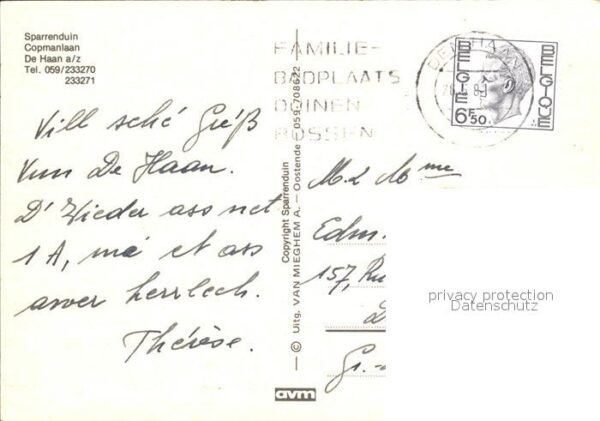 Sparrenduin
Copmanlaan
De Haan a/z
Tel. 059/233270
233271
Vill sché Gréiß
vun De Haan.
D'Wieder ass net
1A, mä et ass
awer herrlech.
Thérèse.
© Uitg. VAN MIEGHEM A. — Oostende 059-708622
Copyright Sparrenduin
avm
FAMILIE-
BADPLAATS
DUINEN
BOSSEN
DE HAAN
BELGIE
BELGIQUE
6F50
M. & Mme
Edm.
157, Ru
Gr. -
privacy protection
Datenschutz